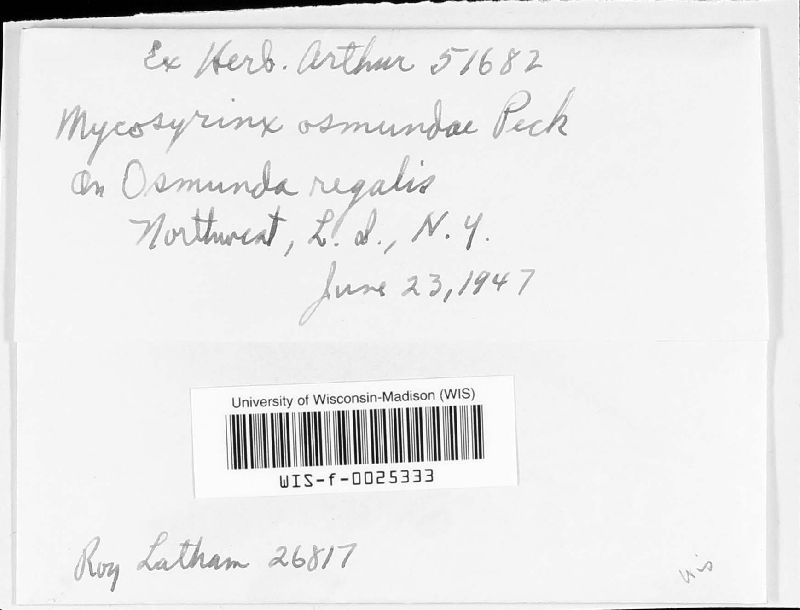 Ex Herb. Arthur 51682
Mycosyrinx osmundae Peck
On Osmunda regalis
Northwest, L. I., N. Y.
June 23, 1947
University of Wisconsin-Madison (WIS)
WIS-f-0025333
Roy Latham 26817
Wis